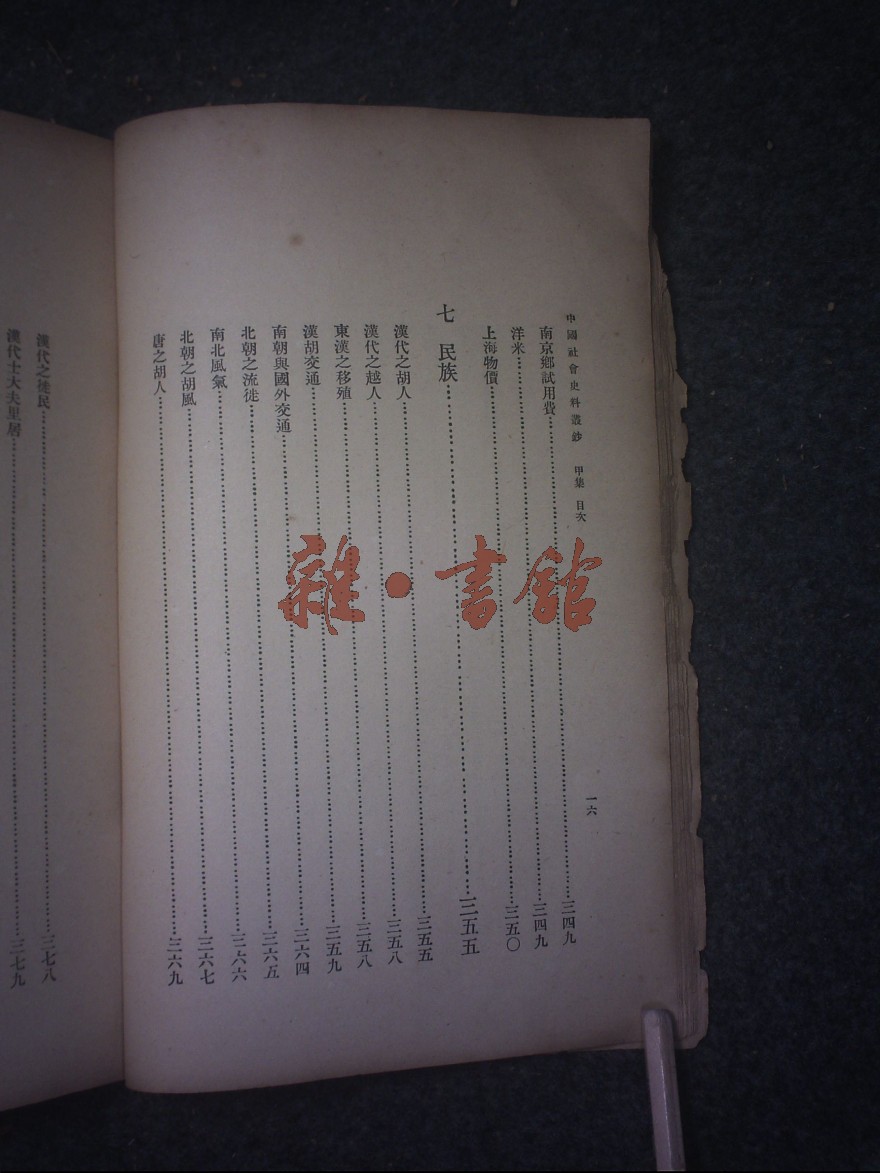 中國社會史料叢鈔 甲集 目次 一六
南京鄉試用費……三四九
洋米……三四九
上海物價……三五〇
七 民族……三五五
漢代之胡人……三五五
漢代之越人……三五八
東漢之移殖……三五八
漢胡交通……三五九
南朝與國外交通……三六四
北朝之流徙……三六五
南北風氣……三六六
北朝之胡風……三六七
唐之胡人……三六九
漢代之徙民……三七八
漢代士大夫里居……三七九
雜·書館